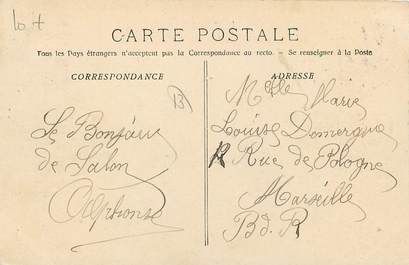 Lot
CARTE POSTALE
Tous les Pays étrangers n'acceptent pas la Correspondance au recto. - Se renseigner à la Poste
CORRESPONDANCE
B
Le Bonjour
de Salon
Alphonse
ADRESSE
Melle Marie
Louise Domergue
R Rue de Pologne
Marseille
Bd. R